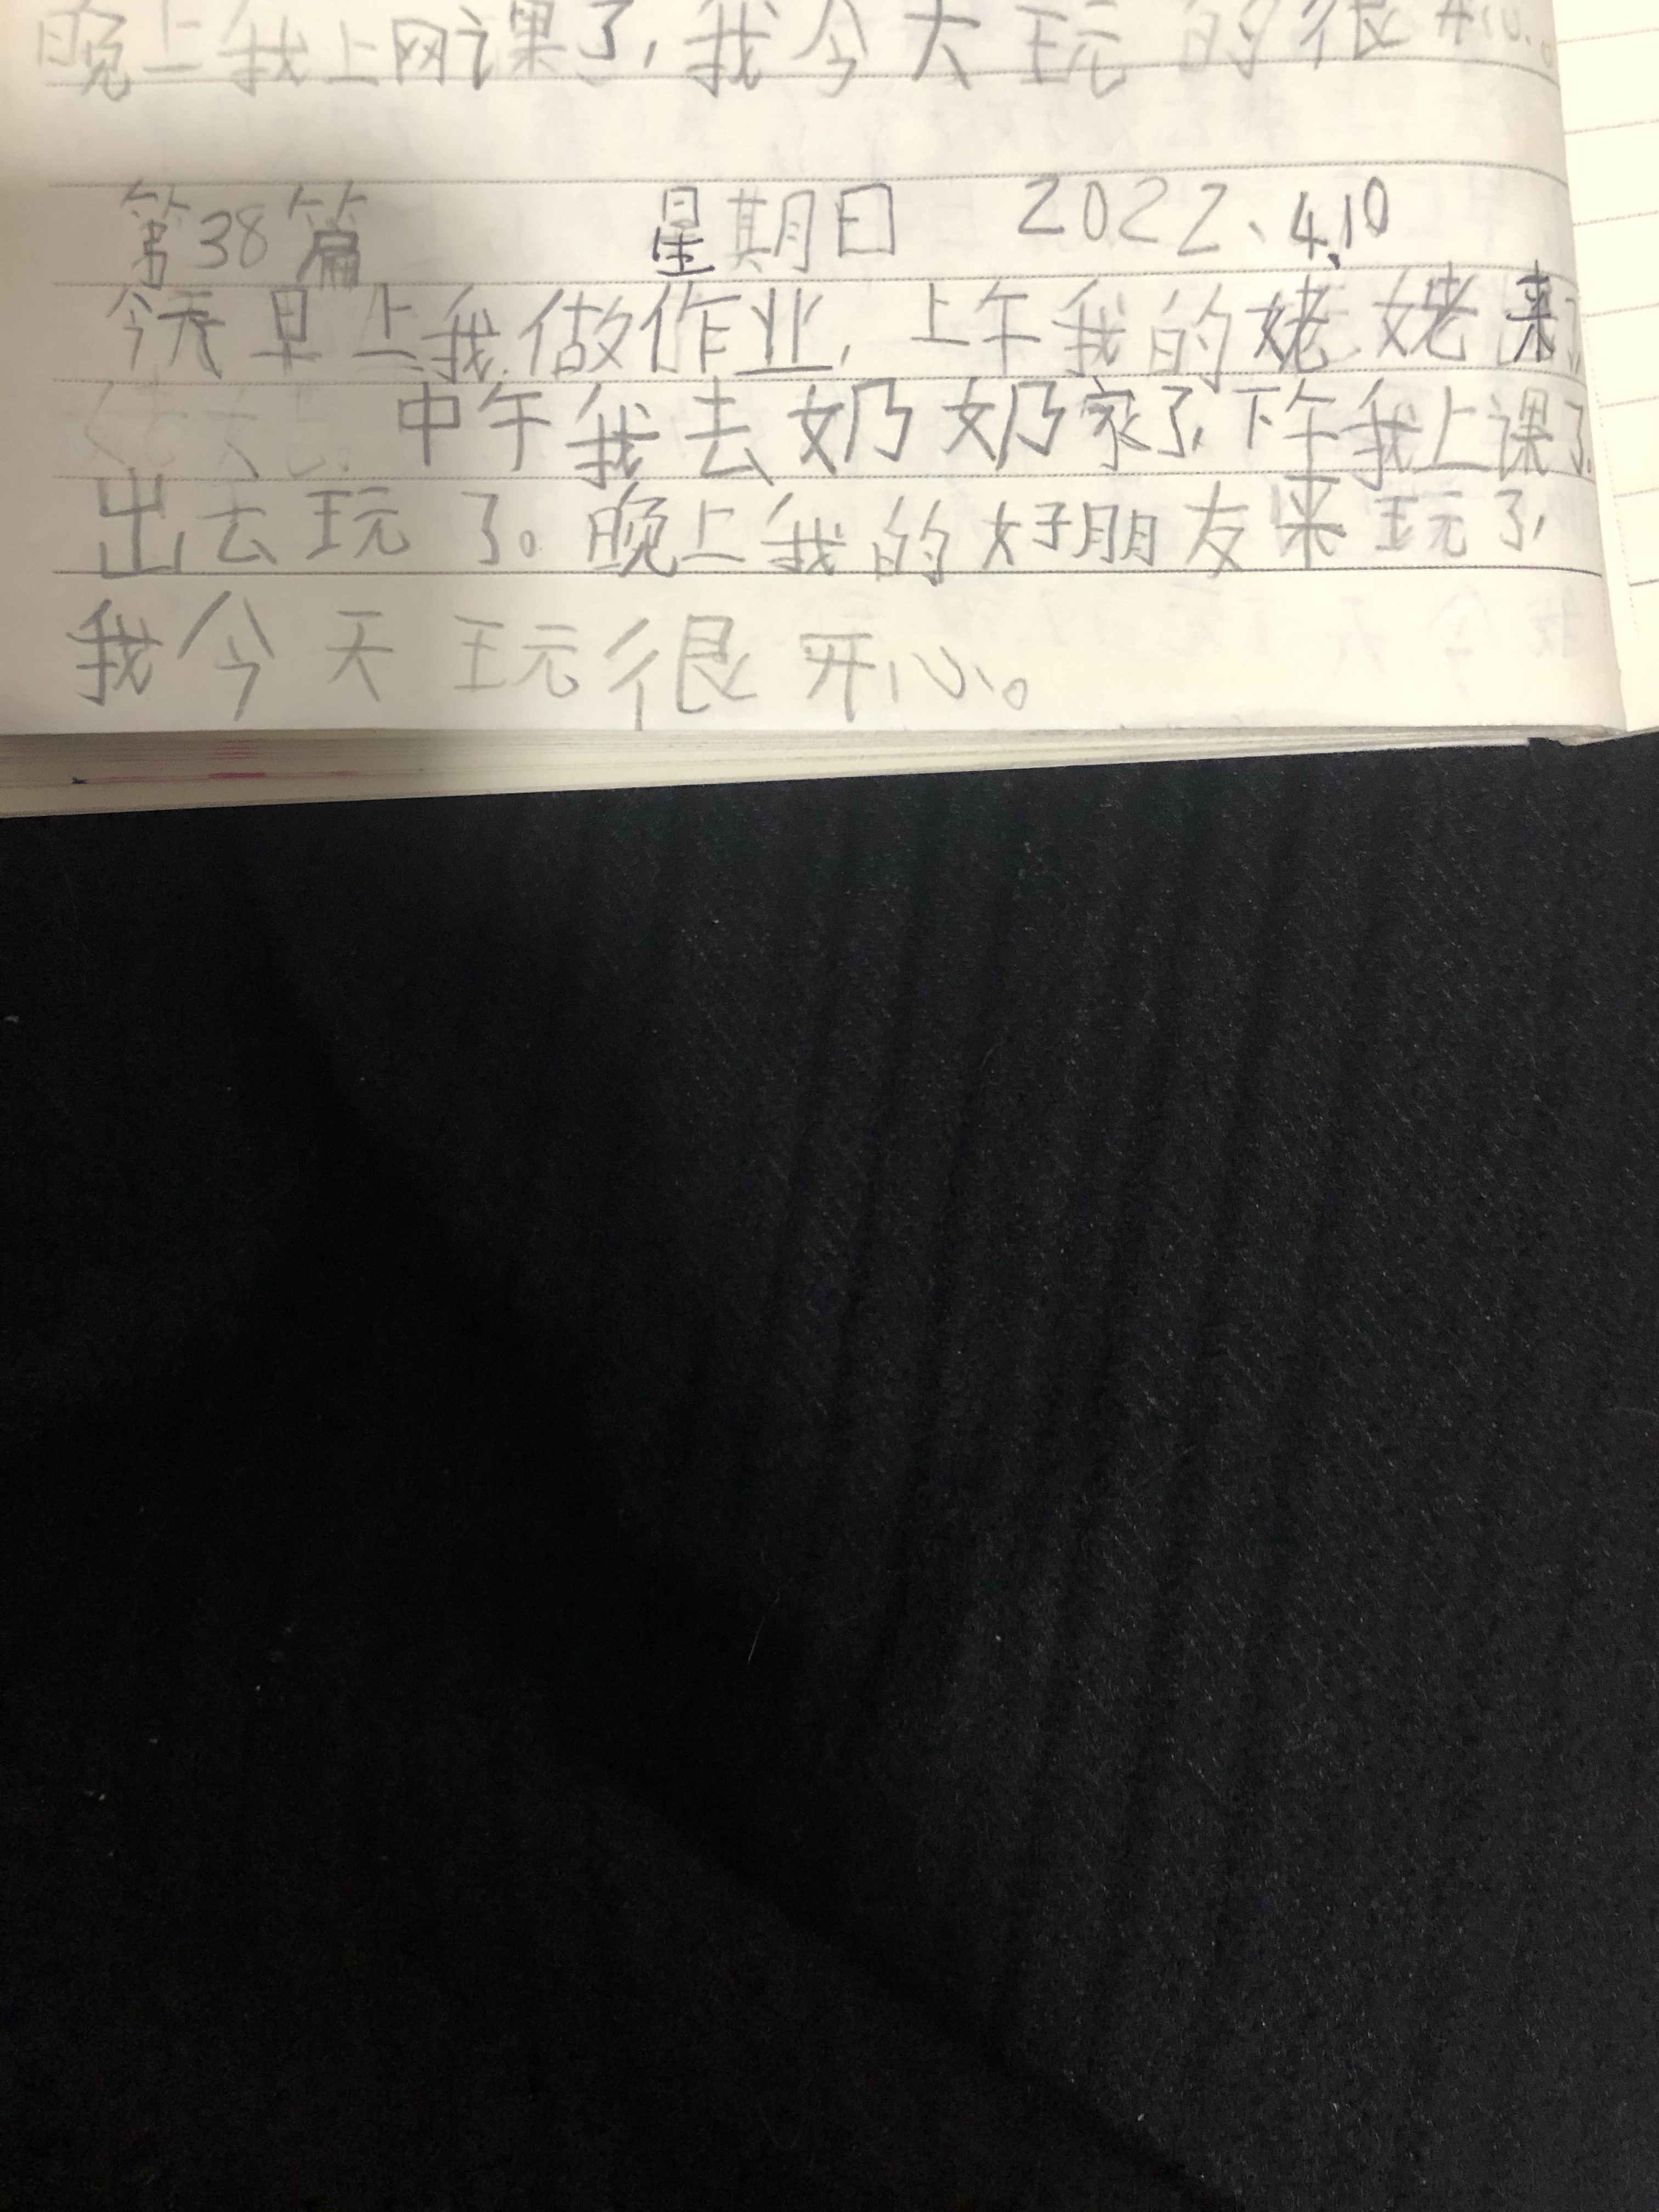 晚上我上网课了，我今天玩的很开心。
第38篇 星期日 2022、4.10
今天早上我做作业，上午我的姥姥来了，
中午我去奶奶家了，下午我上课了，
出去玩了。晚上我的好朋友来玩了，
我今天玩很开心。